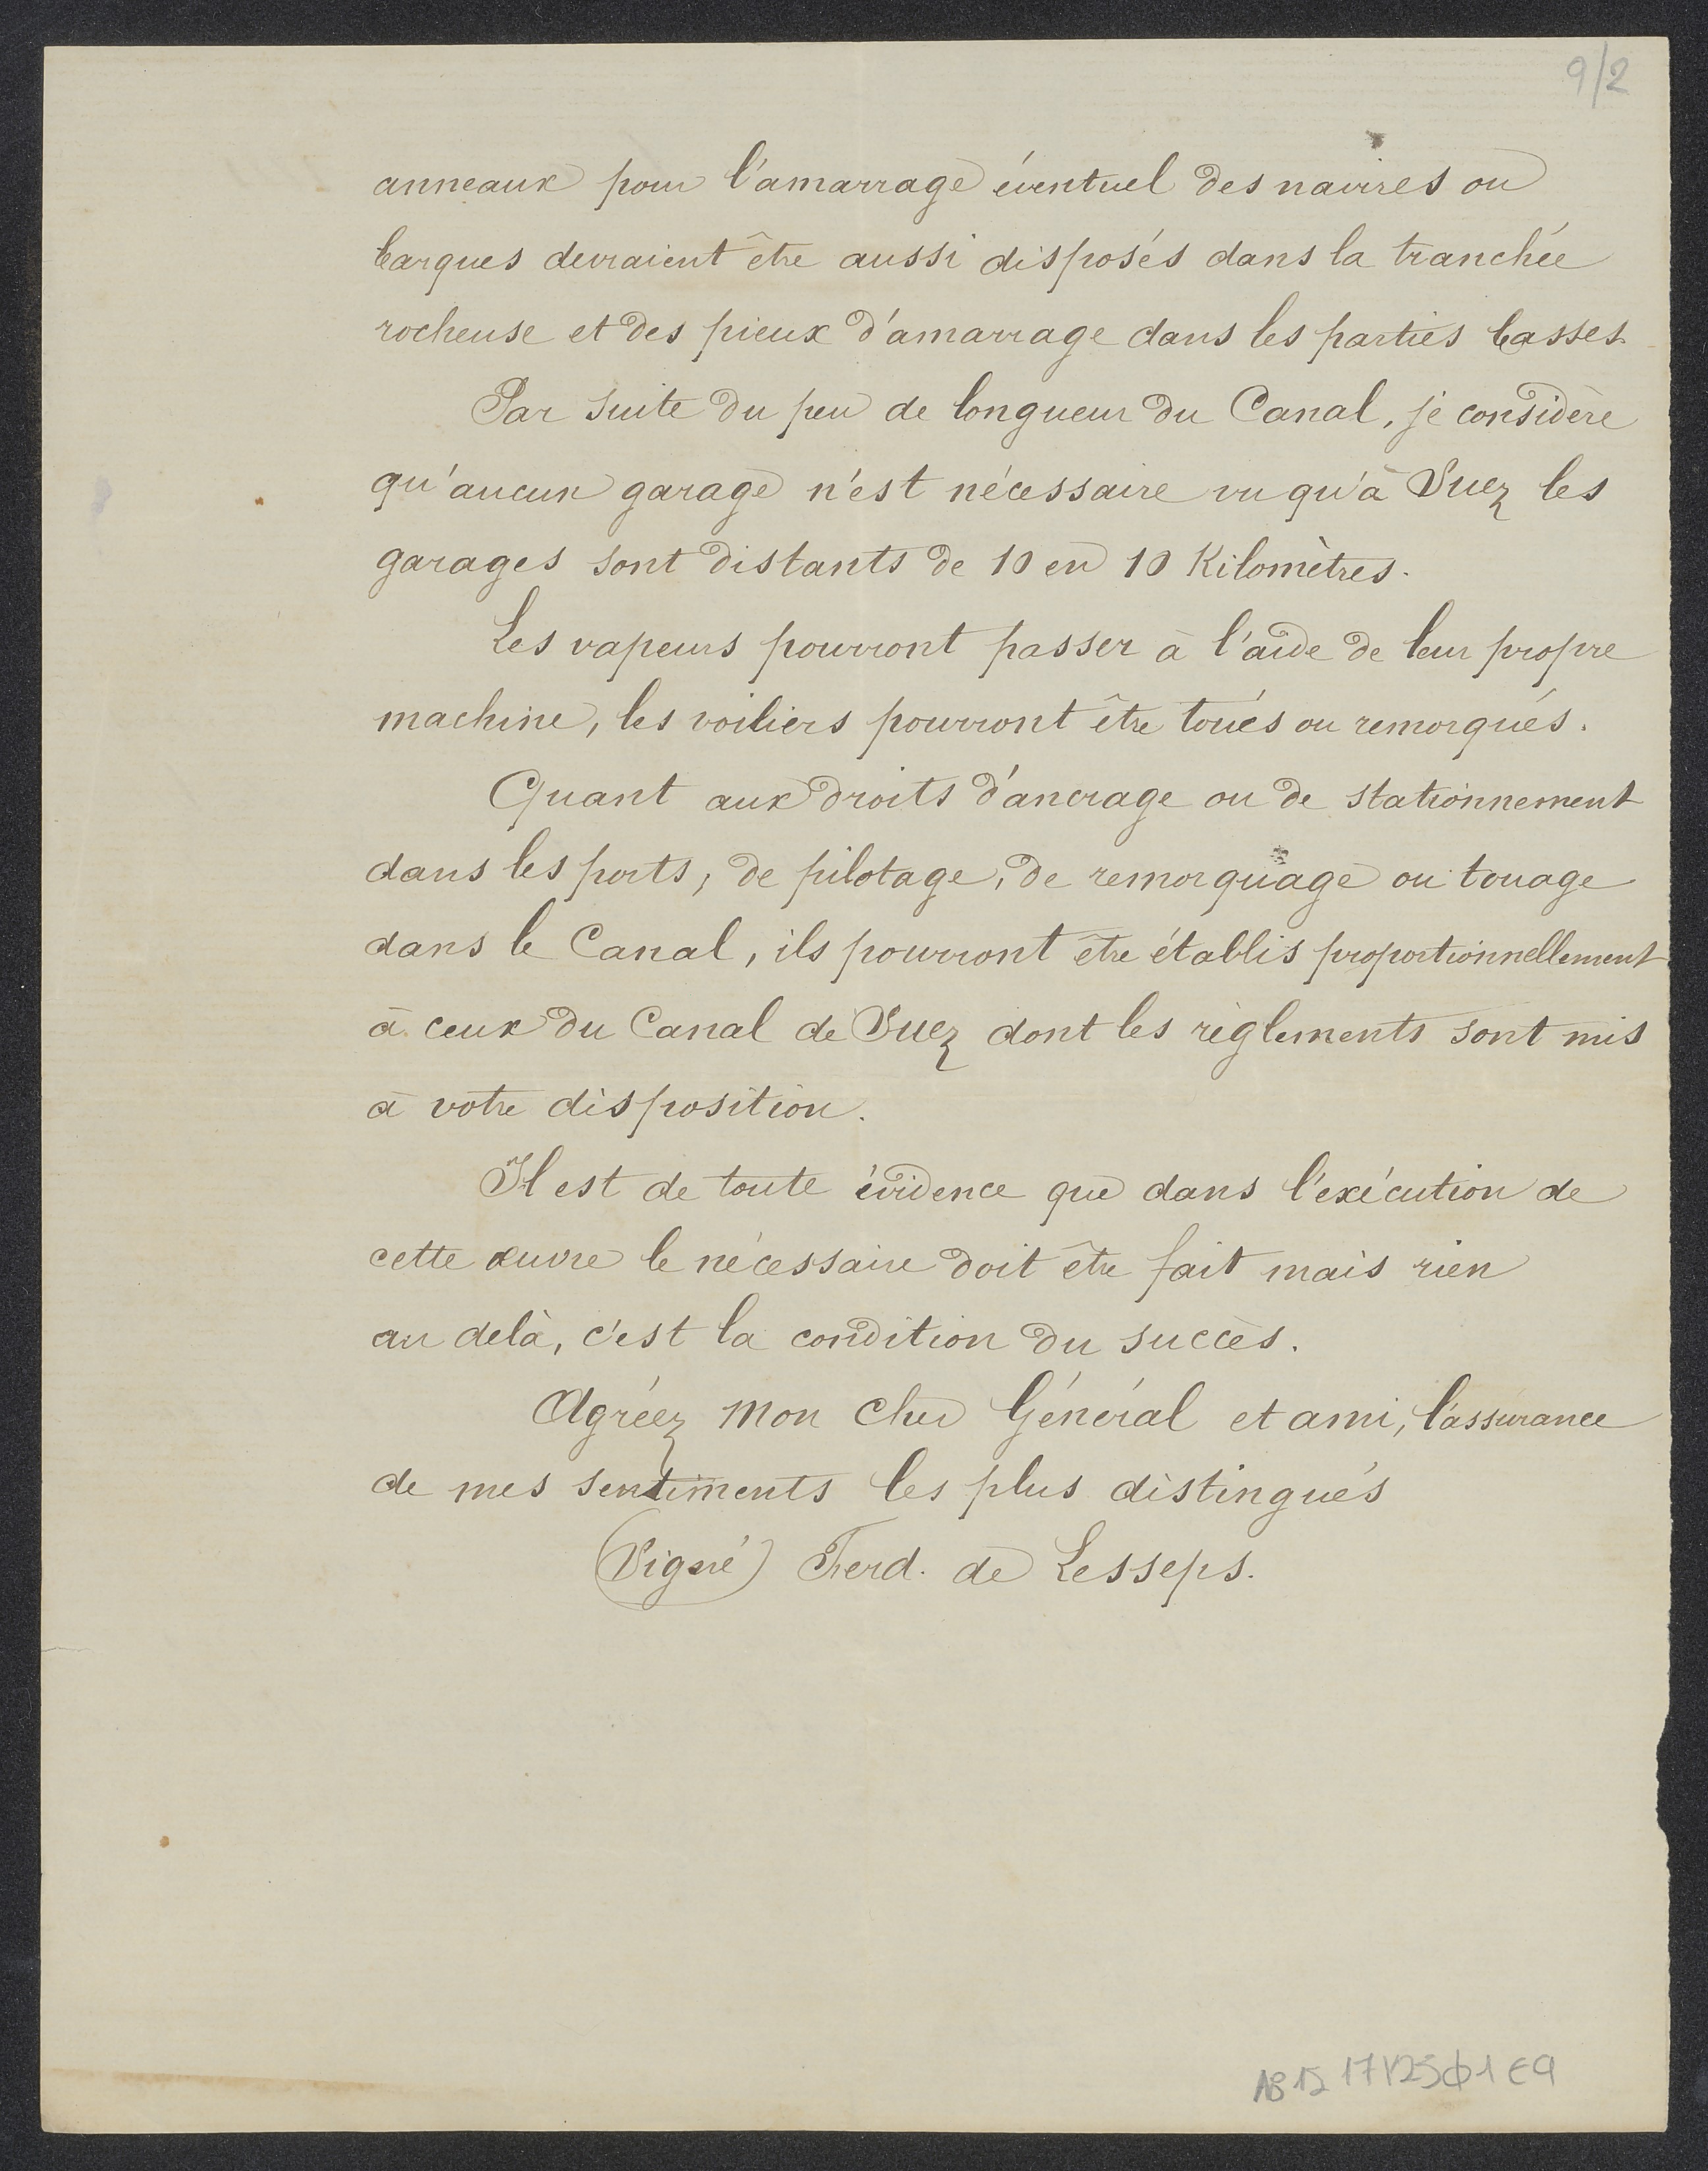 9/2
anneaux pour l'amarrage éventuel des navires ou
barques devraient être aussi disposés dans la tranchée
rocheuse et des pieux d'amarrage dans les parties basses.
Par suite du peu de longueur du Canal, je considère
qu'aucun garage n'est nécessaire vu qu'à Suez les
garages sont distants de 10 en 10 Kilomètres.
Les vapeurs pourront passer à l'aide de leur propre
machine, les voiliers pourront être toués ou remorqués.
Quant aux droits d'ancrage ou de stationnement
dans les ports, de pilotage, de remorquage ou touage
dans le Canal, ils pourront être établis proportionnellement
à ceux du Canal de Suez dont les règlements sont mis
à votre disposition.
Il est de toute évidence que dans l'exécution de
cette œuvre le nécessaire doit être fait mais rien
au delà, c'est la condition du succès.
Agréez mon cher Général et ami, l'assurance
de mes sentiments les plus distingués
(Signé) Ferd. de Lesseps.